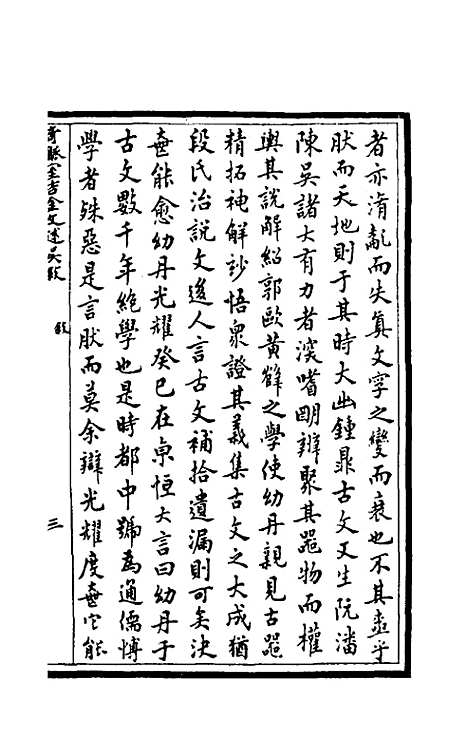 者亦淆亂而失真文字之變而衰也不其盡乎
肰而天地則于其時大出鍾鼎古文又生阮潘
陳吳諸大有力者深嗜明辨聚其器物而權
輿其說解紹郭歐黃薛之學使幼丹親見古器
精拓神解妙悟衆證其義集古文之大成猶
段氏治說文後人言古文補拾遺漏則可矣決
無能愈幼丹光耀癸巳在京恒大言曰幼丹于
古文數千年絕學也是時都中號為通儒博
學者殊惡是言肰而莫余辯光耀度無它能
奇觚室吉金文述吳敘
敘
三